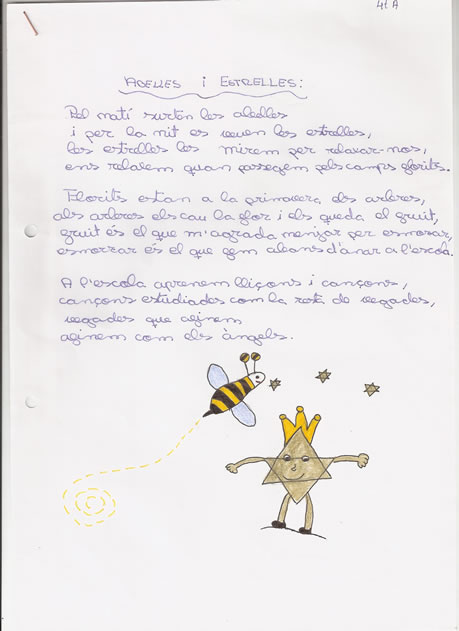 4t A
ABELLES i ESTRELLES:
Pel matí surten les abelles
i per la nit es veuen les estrelles,
les estrelles les mirem per relaxar-nos,
ens relaxem quan passegem pels camps florits.
Florits estan a la primavera, els arbres,
als arbres els cau la flor i els queda el fruit,
fruit és el que m'agrada menjar per esmorzar,
esmorzar és el que fem abans d'anar a l'escola.
A l'escola aprenem lliçons i cançons,
cançons estudiades com la resta de vegades,
vegades que afinem
afinem com els àngels.